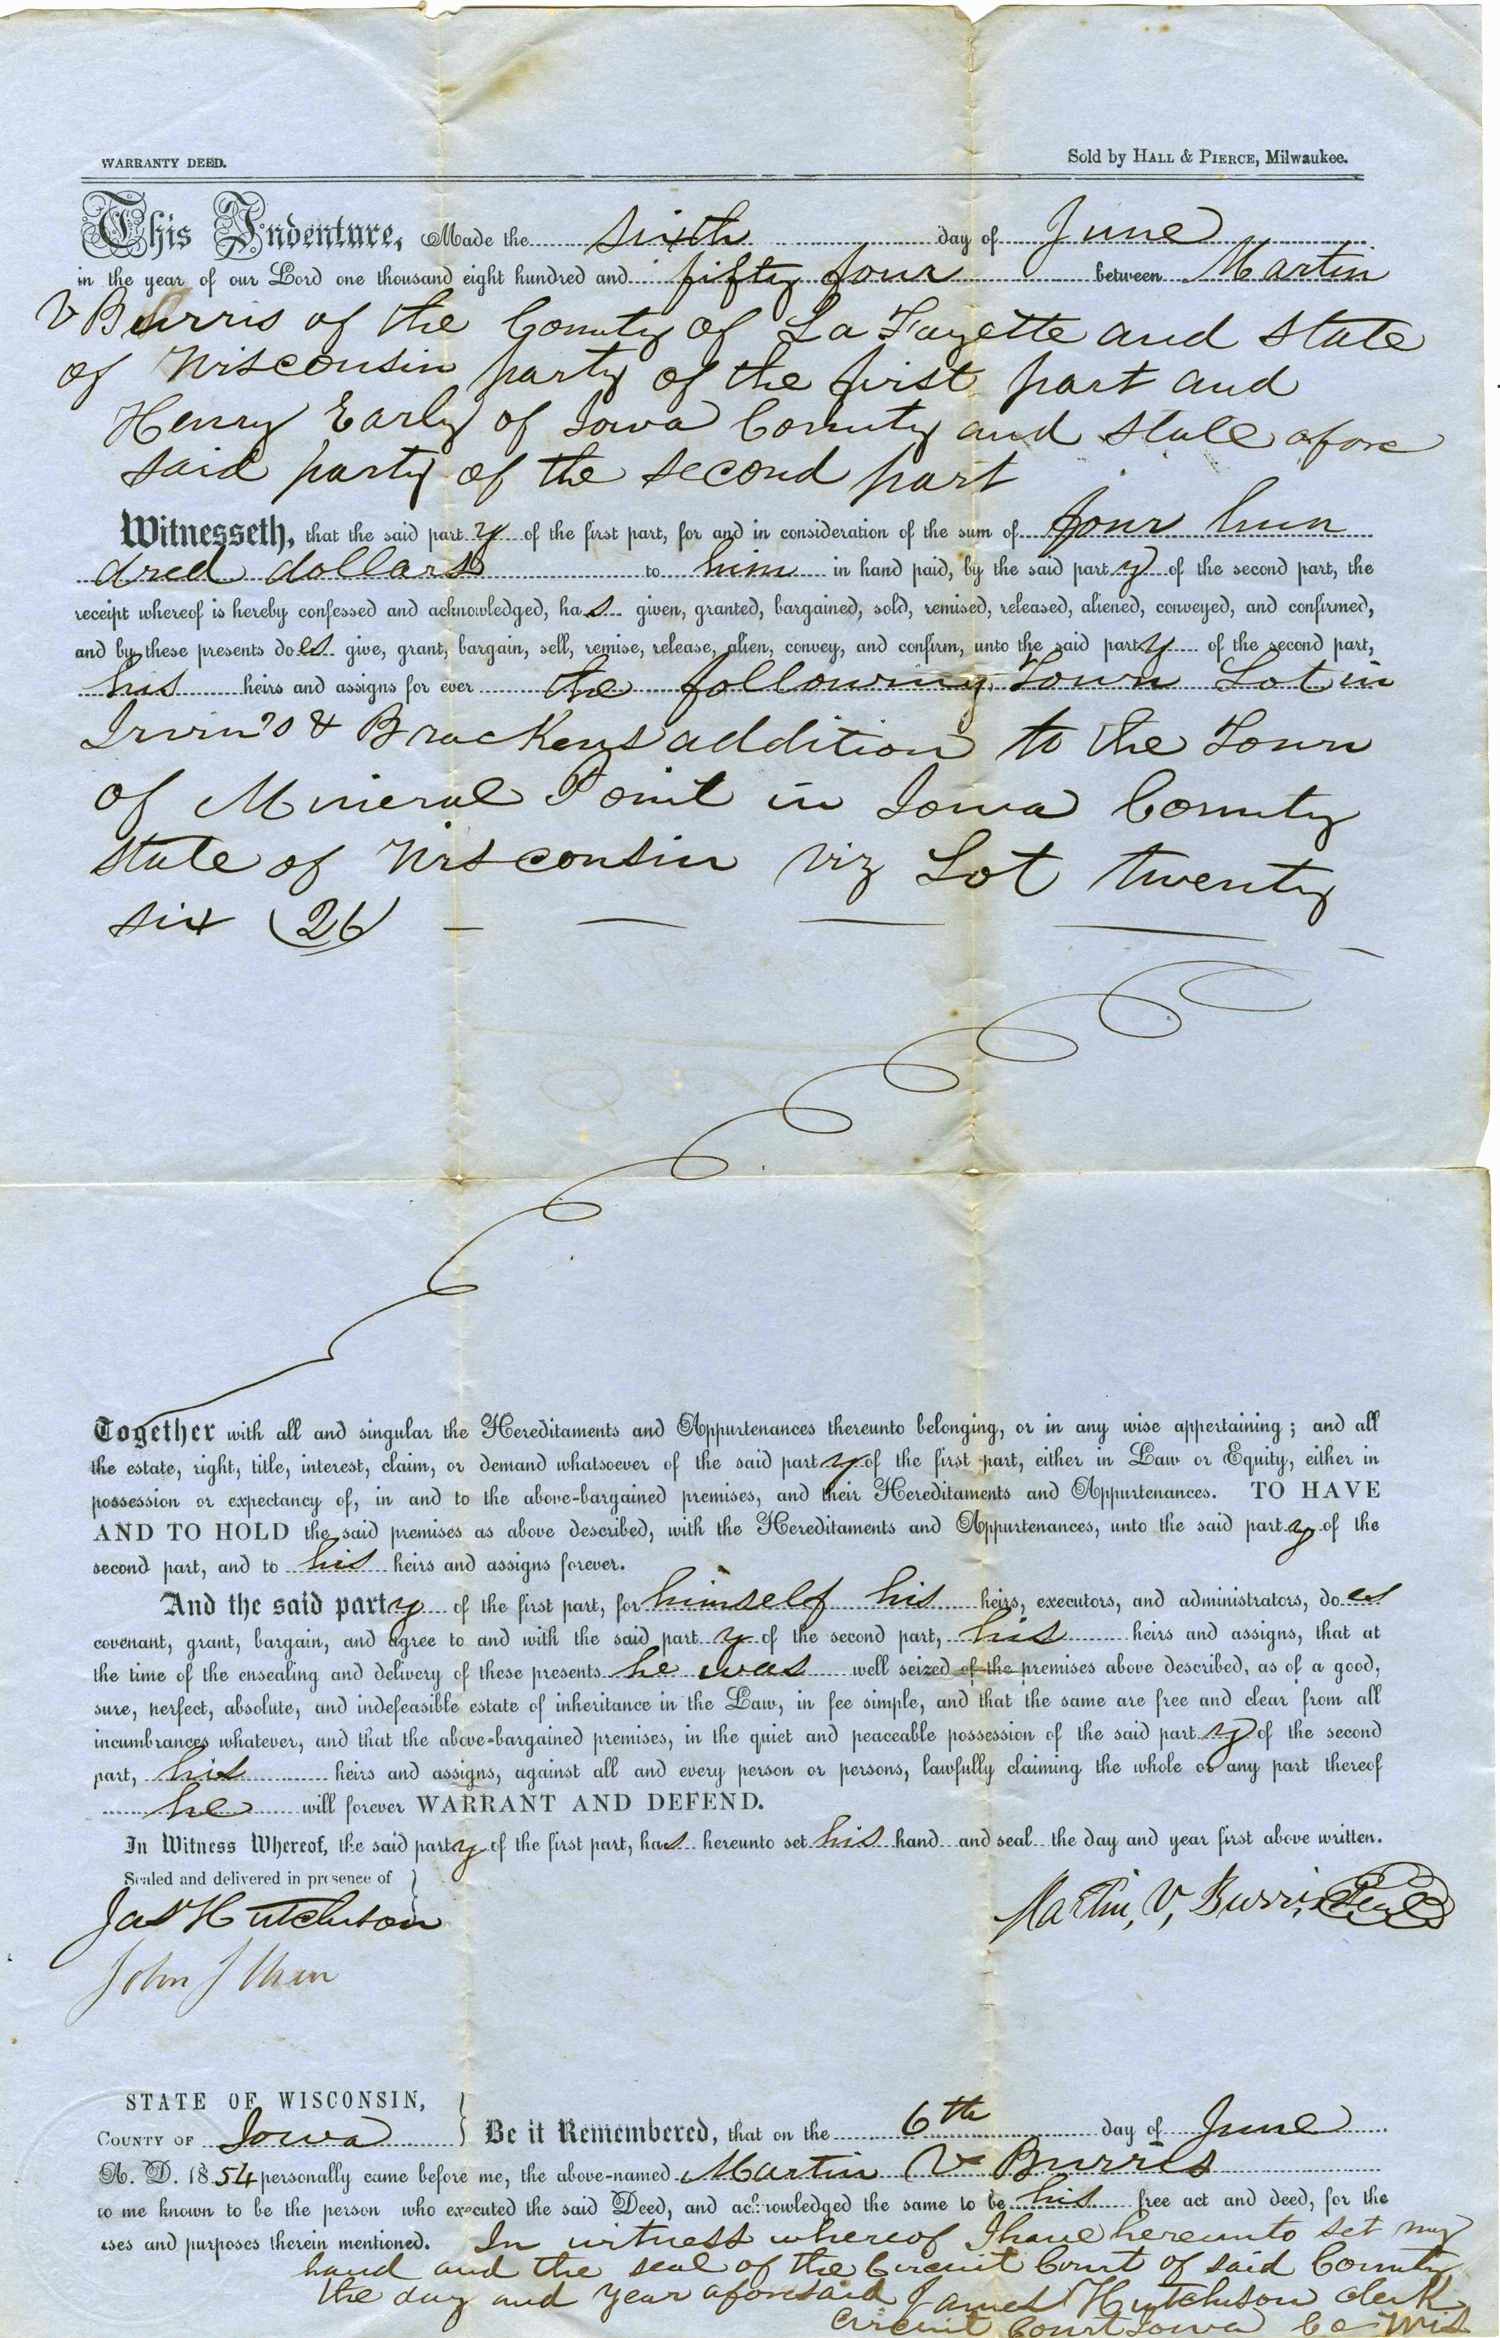 WARRANTY DEED.
Sold by HALL & PIERCE, Milwaukee.
This Indenture, Made the sixth day of June
in the year of our Lord one thousand eight hundred and fifty four between Martin
V Burris of the County of La Fayette and State
of Wisconsin party of the first part and
Henry Early of Iowa County and State afore
said party of the second part
Witnesseth, that the said party of the first part, for and in consideration of the sum of four hun
dred dollars to him in hand paid, by the said party of the second part, the
receipt whereof is hereby confessed and acknowledged, has given, granted, bargained, sold, remised, released, aliened, conveyed, and confirmed,
and by these presents does give, grant, bargain, sell, remise, release, alien, convey, and confirm, unto the said party of the second part,
his heirs and assigns for ever the following Town Lot in
& Brackens addition to the Town
of Mineral Point in Iowa County
State of Wisconsin viz Lot twenty
six (26)
Together with all and singular the Hereditaments and Appurtenances thereunto belonging, or in any wise appertaining; and all
the estate, right, title, interest, claim, or demand whatsoever of the said party of the first part, either in Law or Equity, either in
possession or expectancy of, in and to the above-bargained premises, and their Hereditaments and Appurtenances. TO HAVE
AND TO HOLD the said premises as above described, with the Hereditaments and Appurtenances, unto the said party of the
second part, and to his heirs and assigns forever.
And the said party of the first part, for himself his heirs, executors, and administrators, does
covenant, grant, bargain, and agree to and with the said party of the second part, his heirs and assigns, that at
the time of the ensealing and delivery of these presents he was well seized of the premises above described, as of a good,
sure, perfect, absolute, and indefeasible estate of inheritance in the Law, in fee simple, and that the same are free and clear from all
incumbrances whatever, and that the above-bargained premises, in the quiet and peaceable possession of the said party of the second
part, his heirs and assigns, against all and every person or persons, lawfully claiming the whole or any part thereof
he will forever WARRANT AND DEFEND.
In Witness Whereof, the said party of the first part, has hereunto set his hand and seal the day and year first above written.
Sealed and delivered in presence of
Jas Hutchison
Martin, V, Burris Seal
John J
STATE OF WISCONSIN,
COUNTY OF Iowa
Be it Remembered, that on the 6th day of June
A. D. 1854 personally came before me, the above-named Martin V Burris
to me known to be the person who executed the said Deed, and acknowledged the same to be his free act and deed, for the
uses and purposes therein mentioned. In witness whereof I have hereunto set my
hand and the seal of the Circuit Court of said County
the day and year aforesaid James Hutchison clerk
Circuit Court Iowa Co Wis